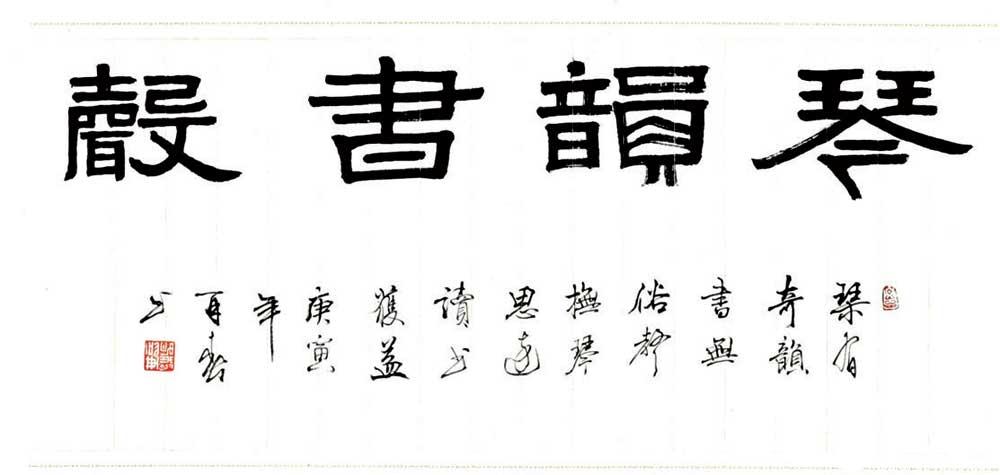 琴韻書聲
琴有
奇韻
書無
俗聲
撫琴
思遠
讀书
獲益
庚寅
年
百
书